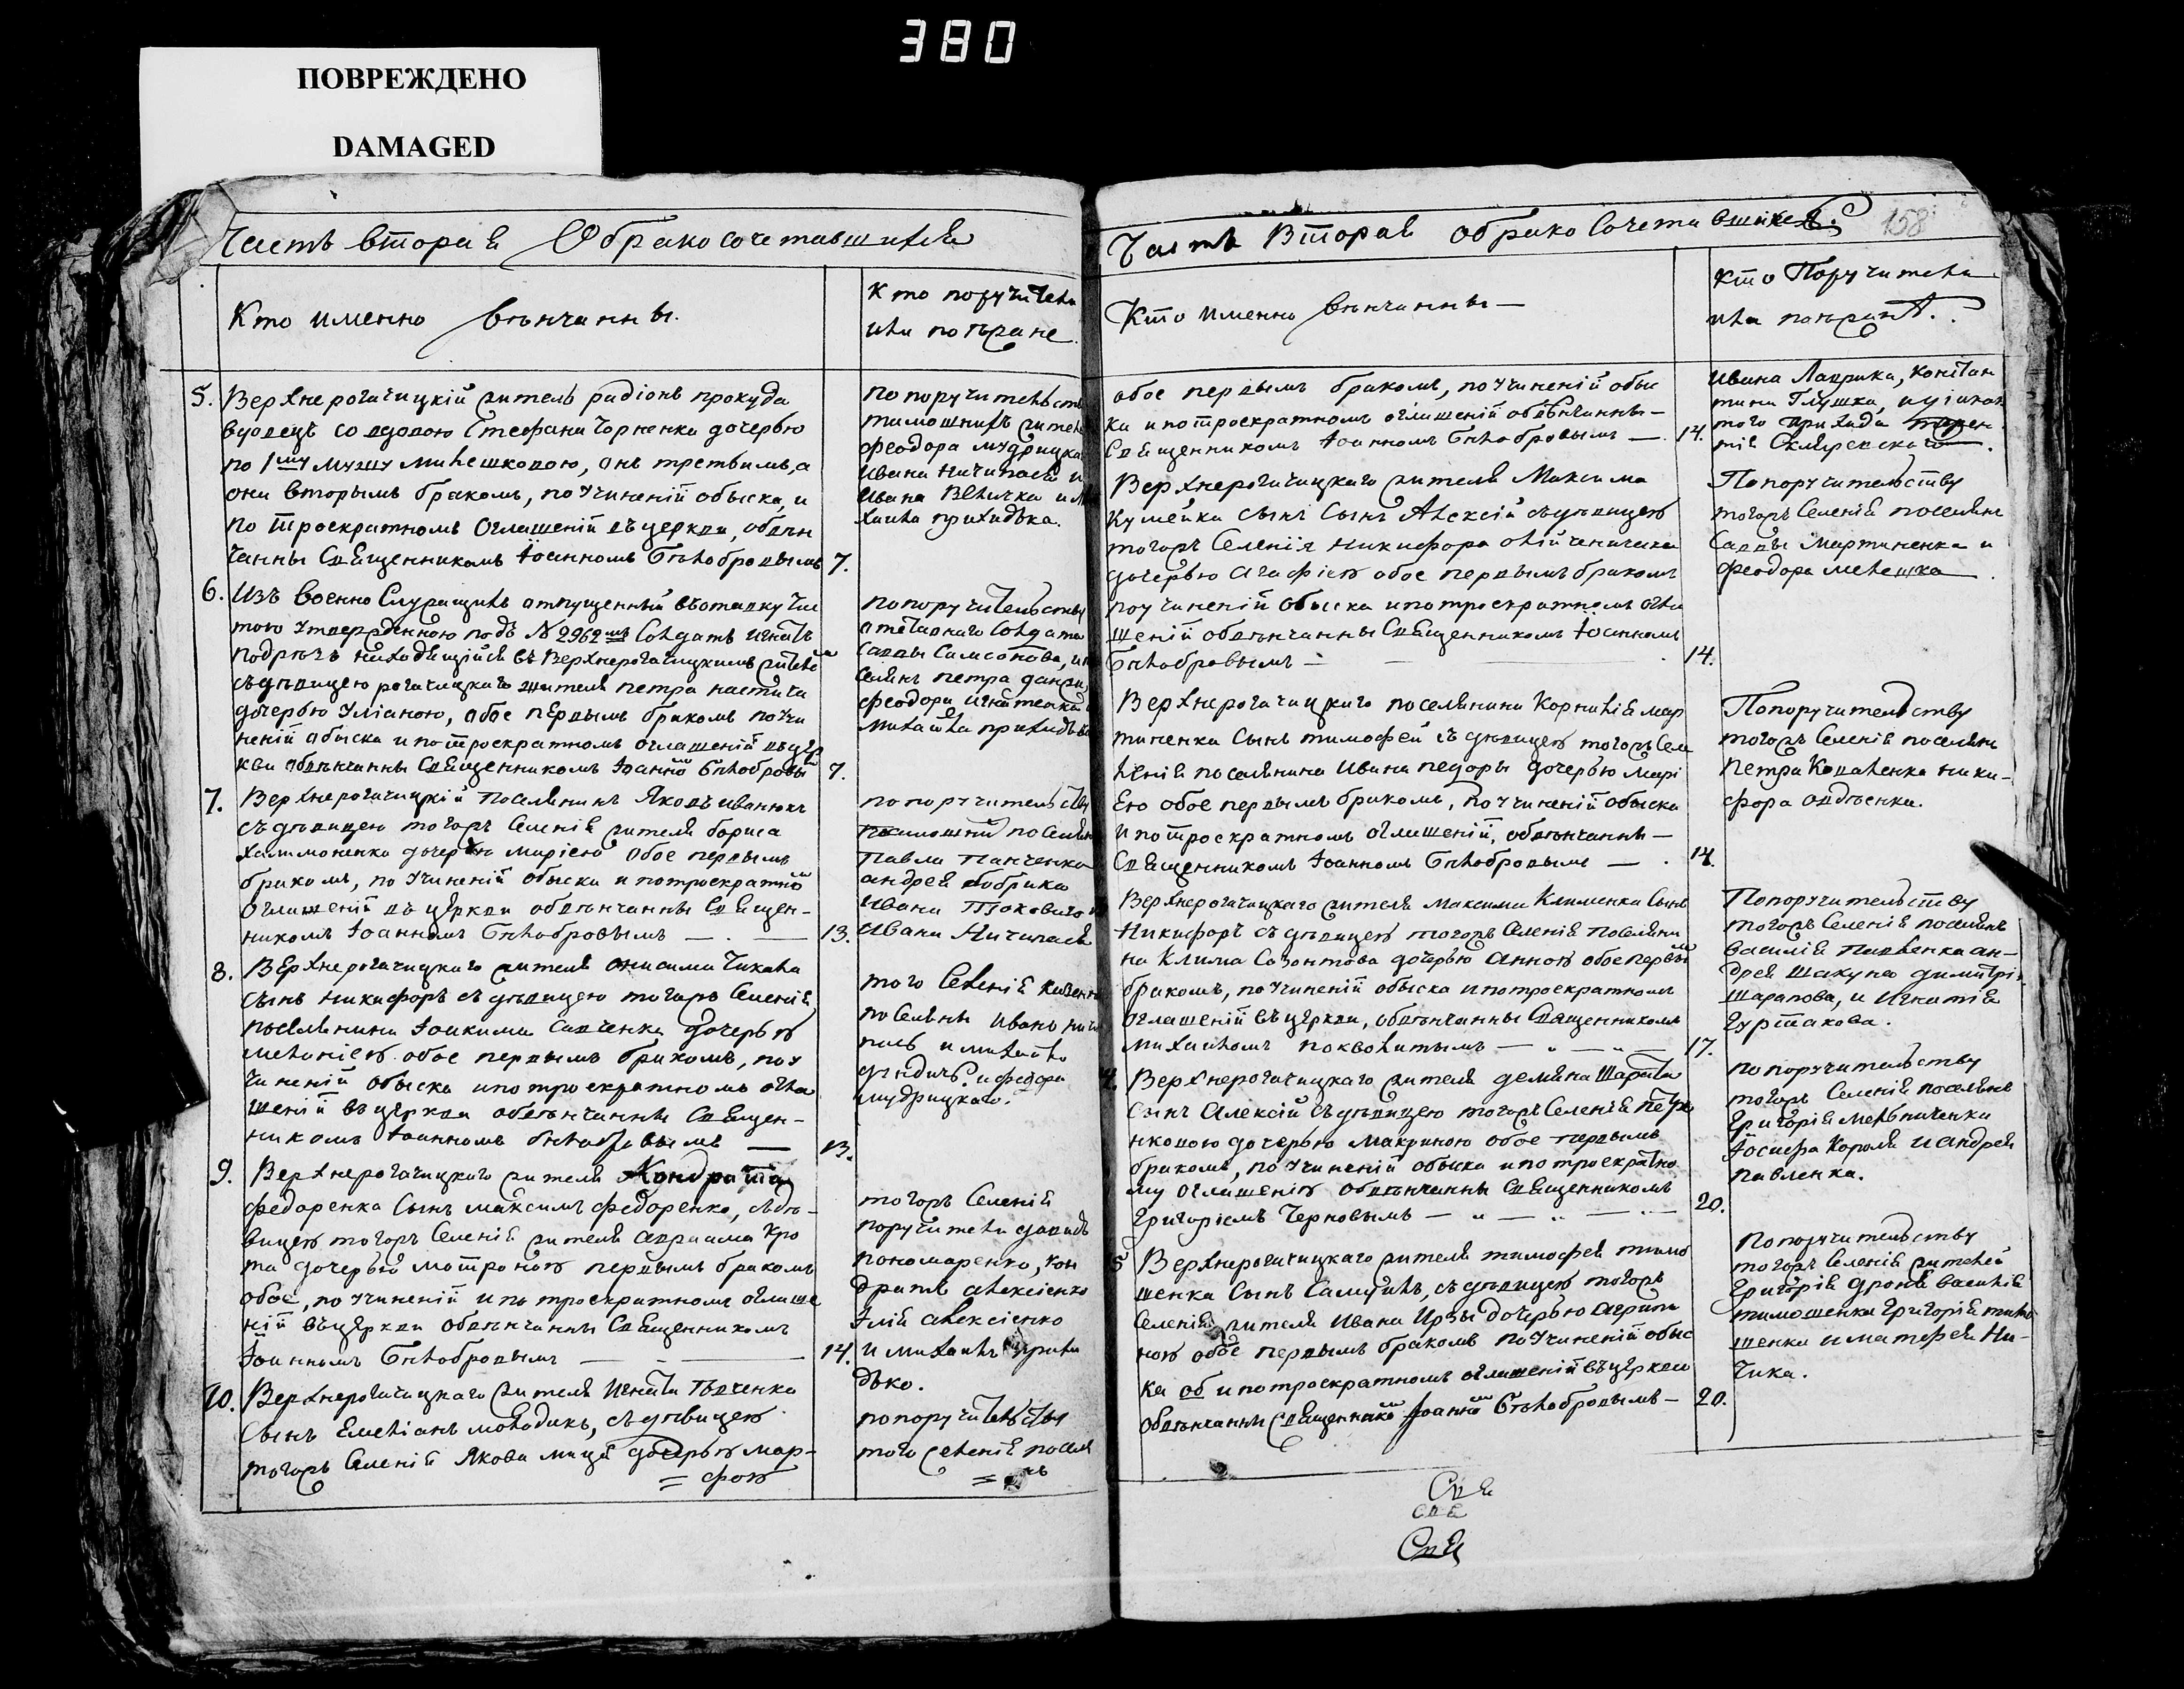 380
ПОВРЕЖДЕНО
DAMAGED
Часть вторая Обракосочетавшихся
Кто именно вѣнчанны.
Кто поручители
или поѣзжане
5. Верхнерогачицкій житель радіонъ прокуда
вдовецъ со вдовою Стефана Чорненка дочерью
по 1му мужу Милешковою, онъ третьимъ, а
она вторымъ бракомъ, по учиненій обыска, и
по троекратномъ оглашеній въ церкви, обвѣн
чанны Священникомъ Іоанномъ Бѣлобровымъ 7.
по поручительств
феодора мудрицка
Ивана Ничипася и
Ивана Величка и Ми
хаила прихидька.
6. Изъ военно Служащихъ отпущенный въ отставку Чис
тою утвержденною подъ № 2962мъ Солдатъ игнатъ
находящійся въ Верхнерогачицкимъ
съ дѣвицею рогачицкаго жителя петра
дочерью Уліаною, обое первымъ бракомъ по учи
неній обыска и по троекратномъ оглашеній въ цер
кви обвѣнчанны Священникомъ Іоанно Бѣлобровы 7.
по поручительству
отставнаго Солдата
саввы Самсонова, и по
селянъ петра
феодора игнатенка
михайла прихидька
7. Верхнерогачицкій Поселянинъ Яковъ иванюкъ
съ дѣвицею тогожъ Селенія жителя бориса
Халимоненка дочерью маріею обое первымъ
бракомъ, по учиненій обыска и по троекратно
оглашеній въ церкви обвѣнчанны Священ-
никомъ Іоанномъ Бѣлобровымъ — . — 13.
по поручительству
поселян
Павла Панченка
андрея бобрика
Ивана
Ивана Ничипася
8. Верхнерогачицкаго жителя онисима Чикала
сынъ никифоръ съ дѣвицею тогожъ Селенія
поселянина Іоакима Савченка дочерью
меланіею обое первымъ бракомъ, по у
чиненій обыска и по троекратномъ огла
шеній въ церкви обвѣнчанны Священ-
никомъ Іоанномъ бѣлобровымъ — 13.
того Селенія казенн
поселяны Иванъ ничи
пась и михайло
и федоръ
мудрицкаго.
9. Верхнерогачицкаго жителя Кондрата
федоренка Сынъ максимъ федоренко, съ дѣ-
вицею тогожъ Селенія жителя авраама Кро
та дочерью матроною первымъ бракомъ
обое, по учиненій и по троекратномъ оглаше
ній въ церкви обвѣнчанны Священникомъ
Іоанномъ Бѣлобровымъ — 14.
тогожъ Селенія
поручители давидъ
пономаренко, кон
дратъ алексіенко
Ілій алексіенко
и михаилъ прихи
дько.
10. Верхнерогачицкаго жителя Игната
Сынъ Емеліанъ молодикъ, съ дѣвицею
тогожъ Селенія Якова дочерью мар-
= фою
по поручительству
того Селенія посел
Часть Вторая обрако Сочетавшихся
158
Кто именно Вѣнчанны —
Кто Поручители
или поѣзжане.
обое первымъ бракомъ, по учиненій обыс
ка и по троекратномъ оглашеній обвѣнчанны —
Священникомъ Іоанномъ Бѣлобровымъ — 14.
Ивана Лаврика, Констан
тина Глушка,
того прихода
тія
Верхнерогачицкаго жителя Максима
Кумейка сынъ Сынъ Алексій съ дѣвицею
тогожъ Селенія никифора
дочерью агафіею обое первымъ бракомъ
по учиненій обыска и по троекратномъ огла
шеній обвѣнчанны Священникомъ Іоанномъ
Бѣлобровымъ — 14.
По поручительству
тогожъ Селенія поселянъ
Саввы Мартиненка и
феодора мелешка
Верхнерогачицкаго поселянина Корнилія мар
тиненка Сынъ тимофей съ дѣвицею тогожъ Се
ленія поселянина Ивана педоры дочерью Марі
ею обое первымъ бракомъ, по учиненій обыска
и по троекратномъ оглашеній, обвѣнчанны —
Священникомъ Іоанномъ Бѣлобровымъ — . 14.
По поручительству
тогожъ Селенія поселянъ
Петра Коваленка ники-
фора авдѣенка.
Верхнерогачицкаго жителя максима Клименка Сынъ
Никифоръ съ дѣвицею тогожъ Селенія поселяни
на Клима Созонтова дочерью анною обое первы
бракомъ, по учиненій обыска и по троекратномъ
оглашеній въ церкви, обвѣнчанны Священникомъ
михаиломъ поквалитымъ — 17.
По поручительству
тогожъ Селенія поселянъ
василія ан-
дрея Шакуна димитрія
Шарапова, и Игнатія
Гуртакова.
4. Верхнерогачицкаго жителя демяна
сынъ Алексій съ дѣвицею тогожъ Селенія петре
нковою дочерью Макриною обое первымъ
бракомъ, по учиненій обыска и по троекратно
му оглашенію обвѣнчанны Священникомъ
Григоріемъ Черновымъ — 20.
по поручительству
тогожъ Селенія поселянъ
Григорія мельниченка
Іосифа Короля и андрея
павленка.
5 Верхнерогачицкаго жителя тимофея тимо
шенка Сынъ Самуилъ, съ дѣвицею тогожъ
Селенія жителя Ивана Иржы дочерью агрипи
ною обое первымъ бракомъ по учиненій обыс
ка об и по троекратномъ оглашеній въ церкви
обвѣнчанны Священнико Іоанно Бѣлобровымъ — 20.
по поручительству
тогожъ Селенія жителей
Григорія дроня василія
тимошенка Григорія тимо
шенка и матфея Ни-
чика.
Свя
свя
Свя